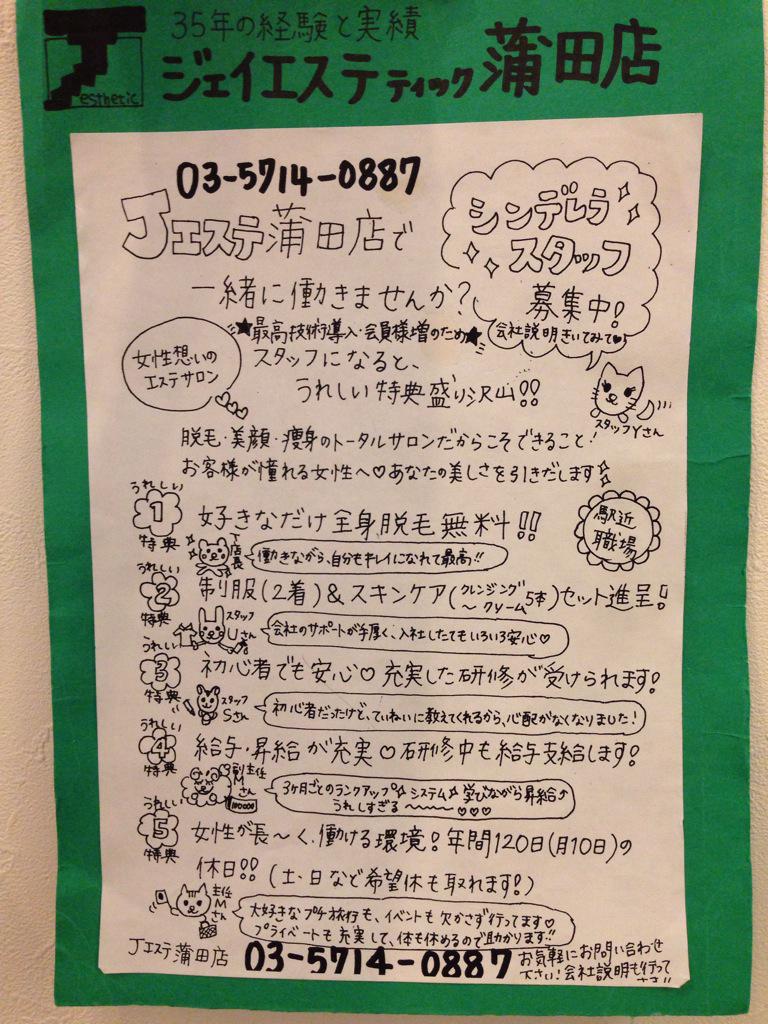 35年の経験と実績
esthetic
ジェイエステティック 蒲田店
03-5714-0887
Jエステ蒲田店で
一緒に働きませんか?
シンデレラ
スタッフ
募集中!
会社説明きいてみて♥
女性想いの
エステサロン
★最高技術導入・会員様増のため★
スタッフになると、
うれしい特典盛り沢山!!
スタッフYさん
脱毛・美顔・痩身のトータルサロンだからこそできること!
お客様が憧れる女性へ♡あなたの美しさを引きだします
駅近
職場
うれしい
1
特典
好きなだけ全身脱毛無料!!
店長
働きながら、自分もキレイになれて最高!!
うれしい
2
特典
制服(2着)&スキンケア(クレンジング〜クリーム5本)セット進呈!
スタッフ
Uさん
会社のサポートが手厚く、入社したてもいろいろ安心♡
うれしい
3
特典
初心者でも安心♡充実した研修が受けられます!
スタッフ
Sさん
初心者だったけど、ていねいに教えてくれるから、心配がなくなりました!
うれしい
4
特典
給与・昇給が充実♡研修中も給与支給します!
副主任
Mさん
3ヶ月ごとのランクアップシステム 学びながら昇給↑
うれしすぎる〜〜〜♡♡♡
うれしい
5
特典
女性が長〜く、働ける環境!年間120日(月10日)の
休日!!(土・日など希望休も取れます!)
主任
Mさん
大好きなプチ旅行も、イベントも欠かさず行ってます♡
プライベートも充実して、体も休めるので助かります!!
Jエステ蒲田店
03-5714-0887
お気軽にお問い合わせ
下さい!会社説明も行って
ます!!